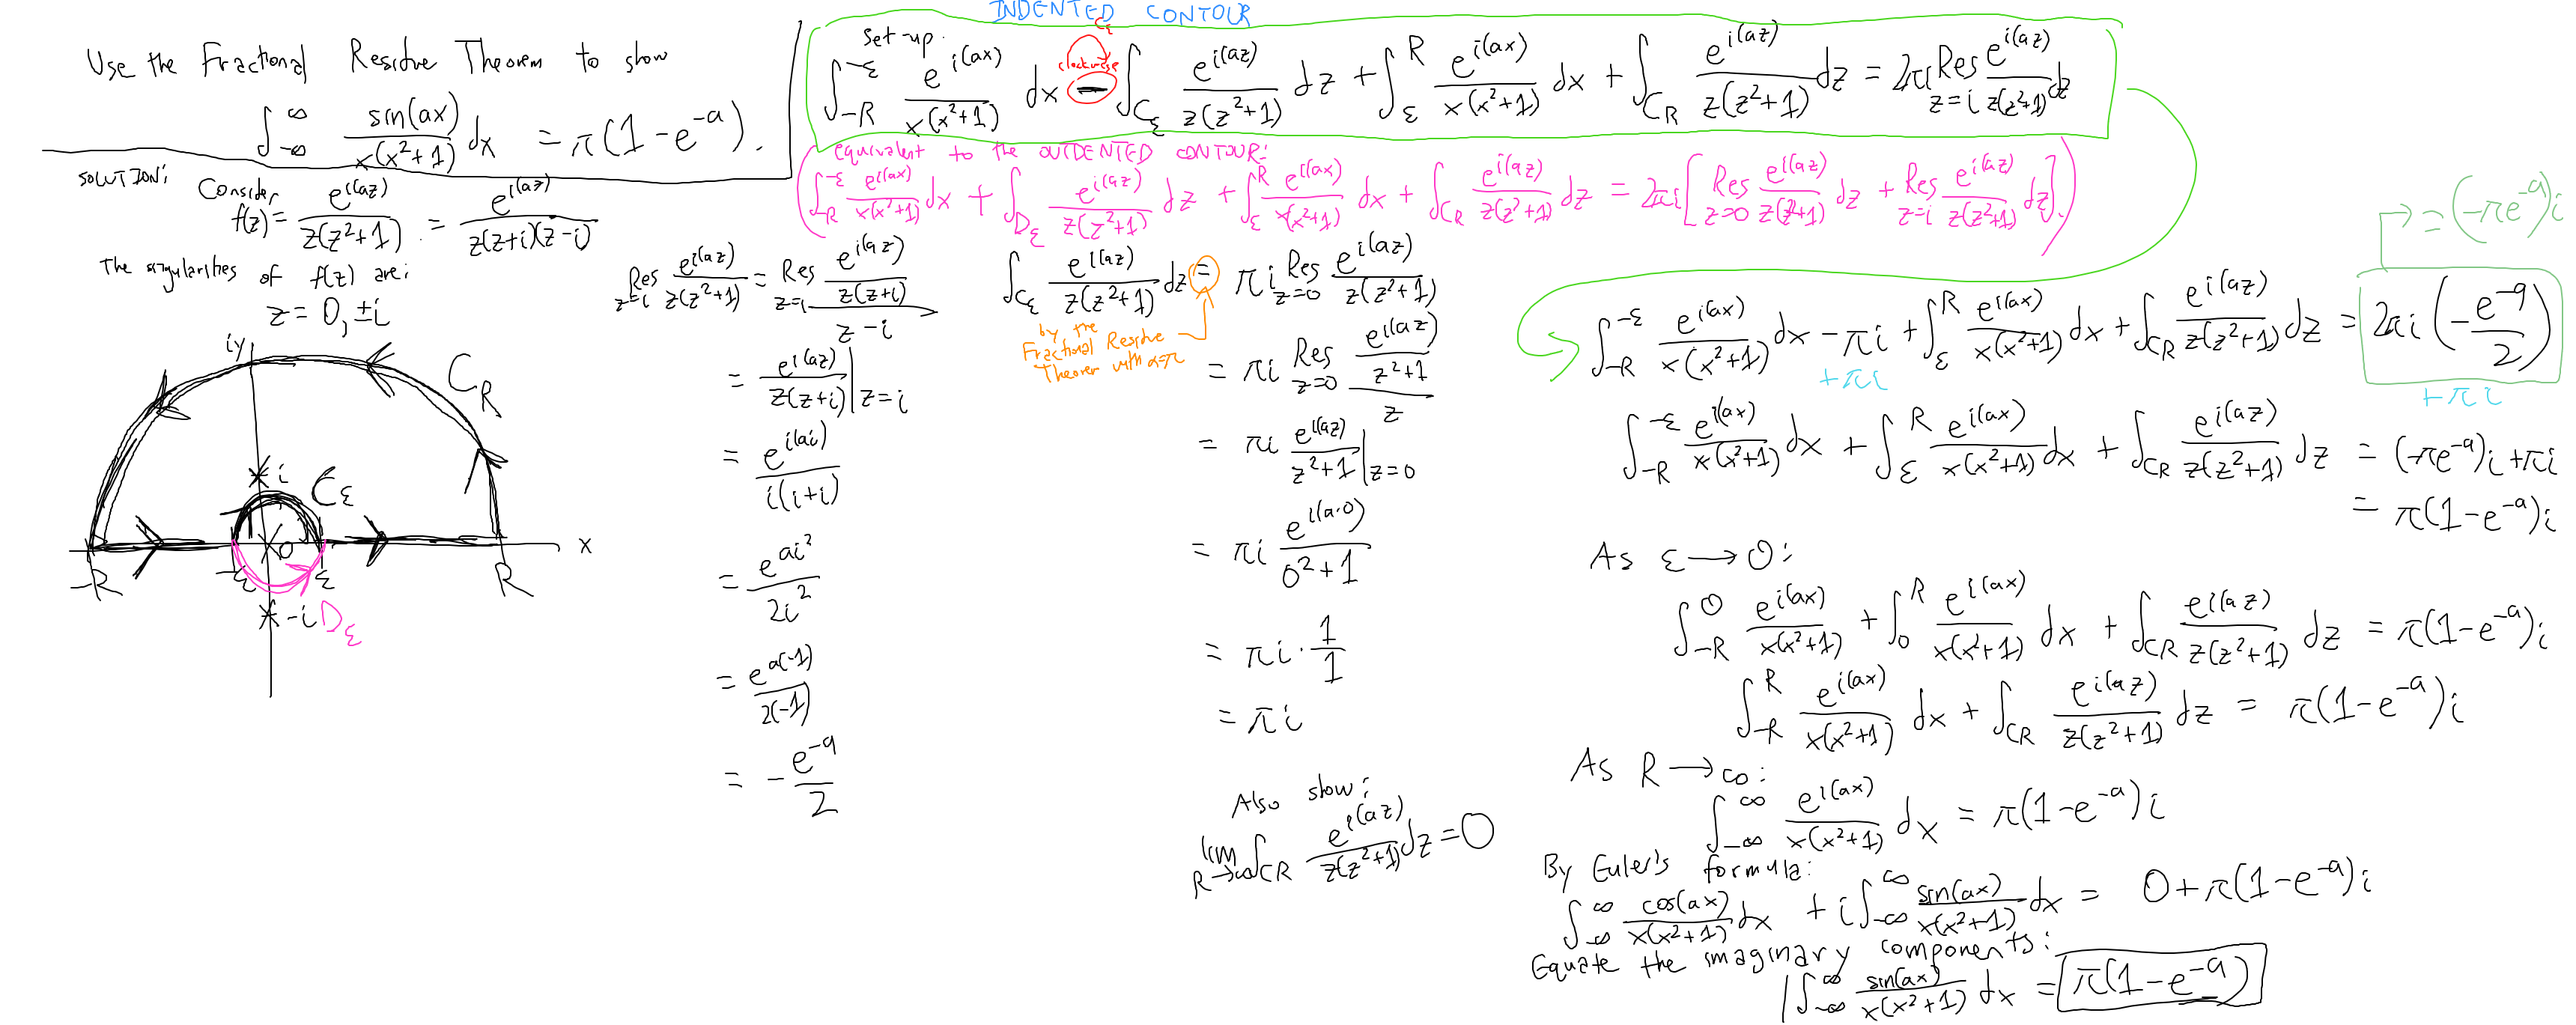 INDENTED CONTOUR
Use the Fractional Residue Theorem to show
∫_{-∞}^{∞} sin(ax)/(x(x²+1)) dx = π(1-e^{-a}).
SOLUTION:
Consider
f(z) = e^{i(az)}/(z(z²+1)) = e^{i(az)}/(z(z+i)(z-i))
The singularities of f(z) are:
z = 0, ±i
iy
C_R
i
C_ε
0
x
-R
-ε
ε
R
-i
D_ε
Res_{z=i} e^{i(az)}/(z(z²+1)) = Res_{z=i} (e^{i(az)}/(z(z+i)))/(z-i)
= e^{i(az)}/(z(z+i)) |_{z=i}
= e^{i(ai)}/(i(i+i))
= e^{ai²}/(2i²)
= e^{a(-1)}/(2(-1))
= -e^{-a}/2
Set-up:
C_ε
clockwise
∫_{-R}^{-ε} e^{i(ax)}/(x(x²+1)) dx - ∫_{C_ε} e^{i(az)}/(z(z²+1)) dz + ∫_{ε}^{R} e^{i(ax)}/(x(x²+1)) dx + ∫_{C_R} e^{i(az)}/(z(z²+1)) dz = 2πi Res_{z=i} e^{i(az)}/(z(z²+1)) dz
(equivalent to the OUTDENTED CONTOUR:
∫_{-R}^{-ε} e^{i(ax)}/(x(x²+1)) dx + ∫_{D_ε} e^{i(az)}/(z(z²+1)) dz + ∫_{ε}^{R} e^{i(ax)}/(x(x²+1)) dx + ∫_{C_R} e^{i(az)}/(z(z²+1)) dz = 2πi[Res_{z=0} e^{i(az)}/(z(z²+1)) dz + Res_{z=i} e^{i(az)}/(z(z²+1)) dz].)
∫_{C_ε} e^{i(az)}/(z(z²+1)) dz = πi Res_{z=0} e^{i(az)}/(z(z²+1))
by the
Fractional Residue
Theorem with α=π
= πi Res_{z=0} (e^{i(az)}/(z²+1))/z
= πi e^{i(az)}/(z²+1) |_{z=0}
= πi e^{i(a·0)}/(0²+1)
= πi · 1/1
= πi
Also show:
lim_{R→∞} ∫_{C_R} e^{i(az)}/(z(z²+1)) dz = 0
= (-πe^{-a})i
∫_{-R}^{-ε} e^{i(ax)}/(x(x²+1)) dx - πi + ∫_{ε}^{R} e^{i(ax)}/(x(x²+1)) dx + ∫_{C_R} e^{i(az)}/(z(z²+1)) dz = 2πi(-e^{-a}/2)
+πi
+πi
∫_{-R}^{-ε} e^{i(ax)}/(x(x²+1)) dx + ∫_{ε}^{R} e^{i(ax)}/(x(x²+1)) dx + ∫_{C_R} e^{i(az)}/(z(z²+1)) dz = (-πe^{-a})i+πi
= π(1-e^{-a})i
As ε→0:
∫_{-R}^{0} e^{i(ax)}/(x(x²+1)) + ∫_{0}^{R} e^{i(ax)}/(x(x²+1)) dx + ∫_{C_R} e^{i(az)}/(z(z²+1)) dz = π(1-e^{-a})i
∫_{-R}^{R} e^{i(ax)}/(x(x²+1)) dx + ∫_{C_R} e^{i(az)}/(z(z²+1)) dz = π(1-e^{-a})i
As R→∞:
∫_{-∞}^{∞} e^{i(ax)}/(x(x²+1)) dx = π(1-e^{-a})i
By Euler's formula:
∫_{-∞}^{∞} cos(ax)/(x(x²+1)) dx + i∫_{-∞}^{∞} sin(ax)/(x(x²+1)) dx = 0+π(1-e^{-a})i
Equate the imaginary components:
∫_{-∞}^{∞} sin(ax)/(x(x²+1)) dx = π(1-e^{-a})